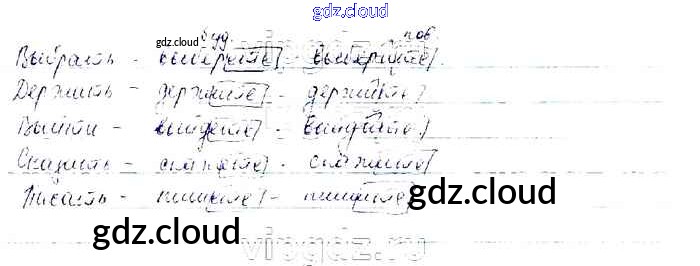 gdz.cloud
gdz.cloud буд. поб.
Выбрать - выберете - выберите.
Держить - держите - держите
Выйти - выйдете - выйдите
Сказать - скажете - скажите
Писать - пишете - пишите
gdz.cloud
gdz.cloud
vipgdz.ru